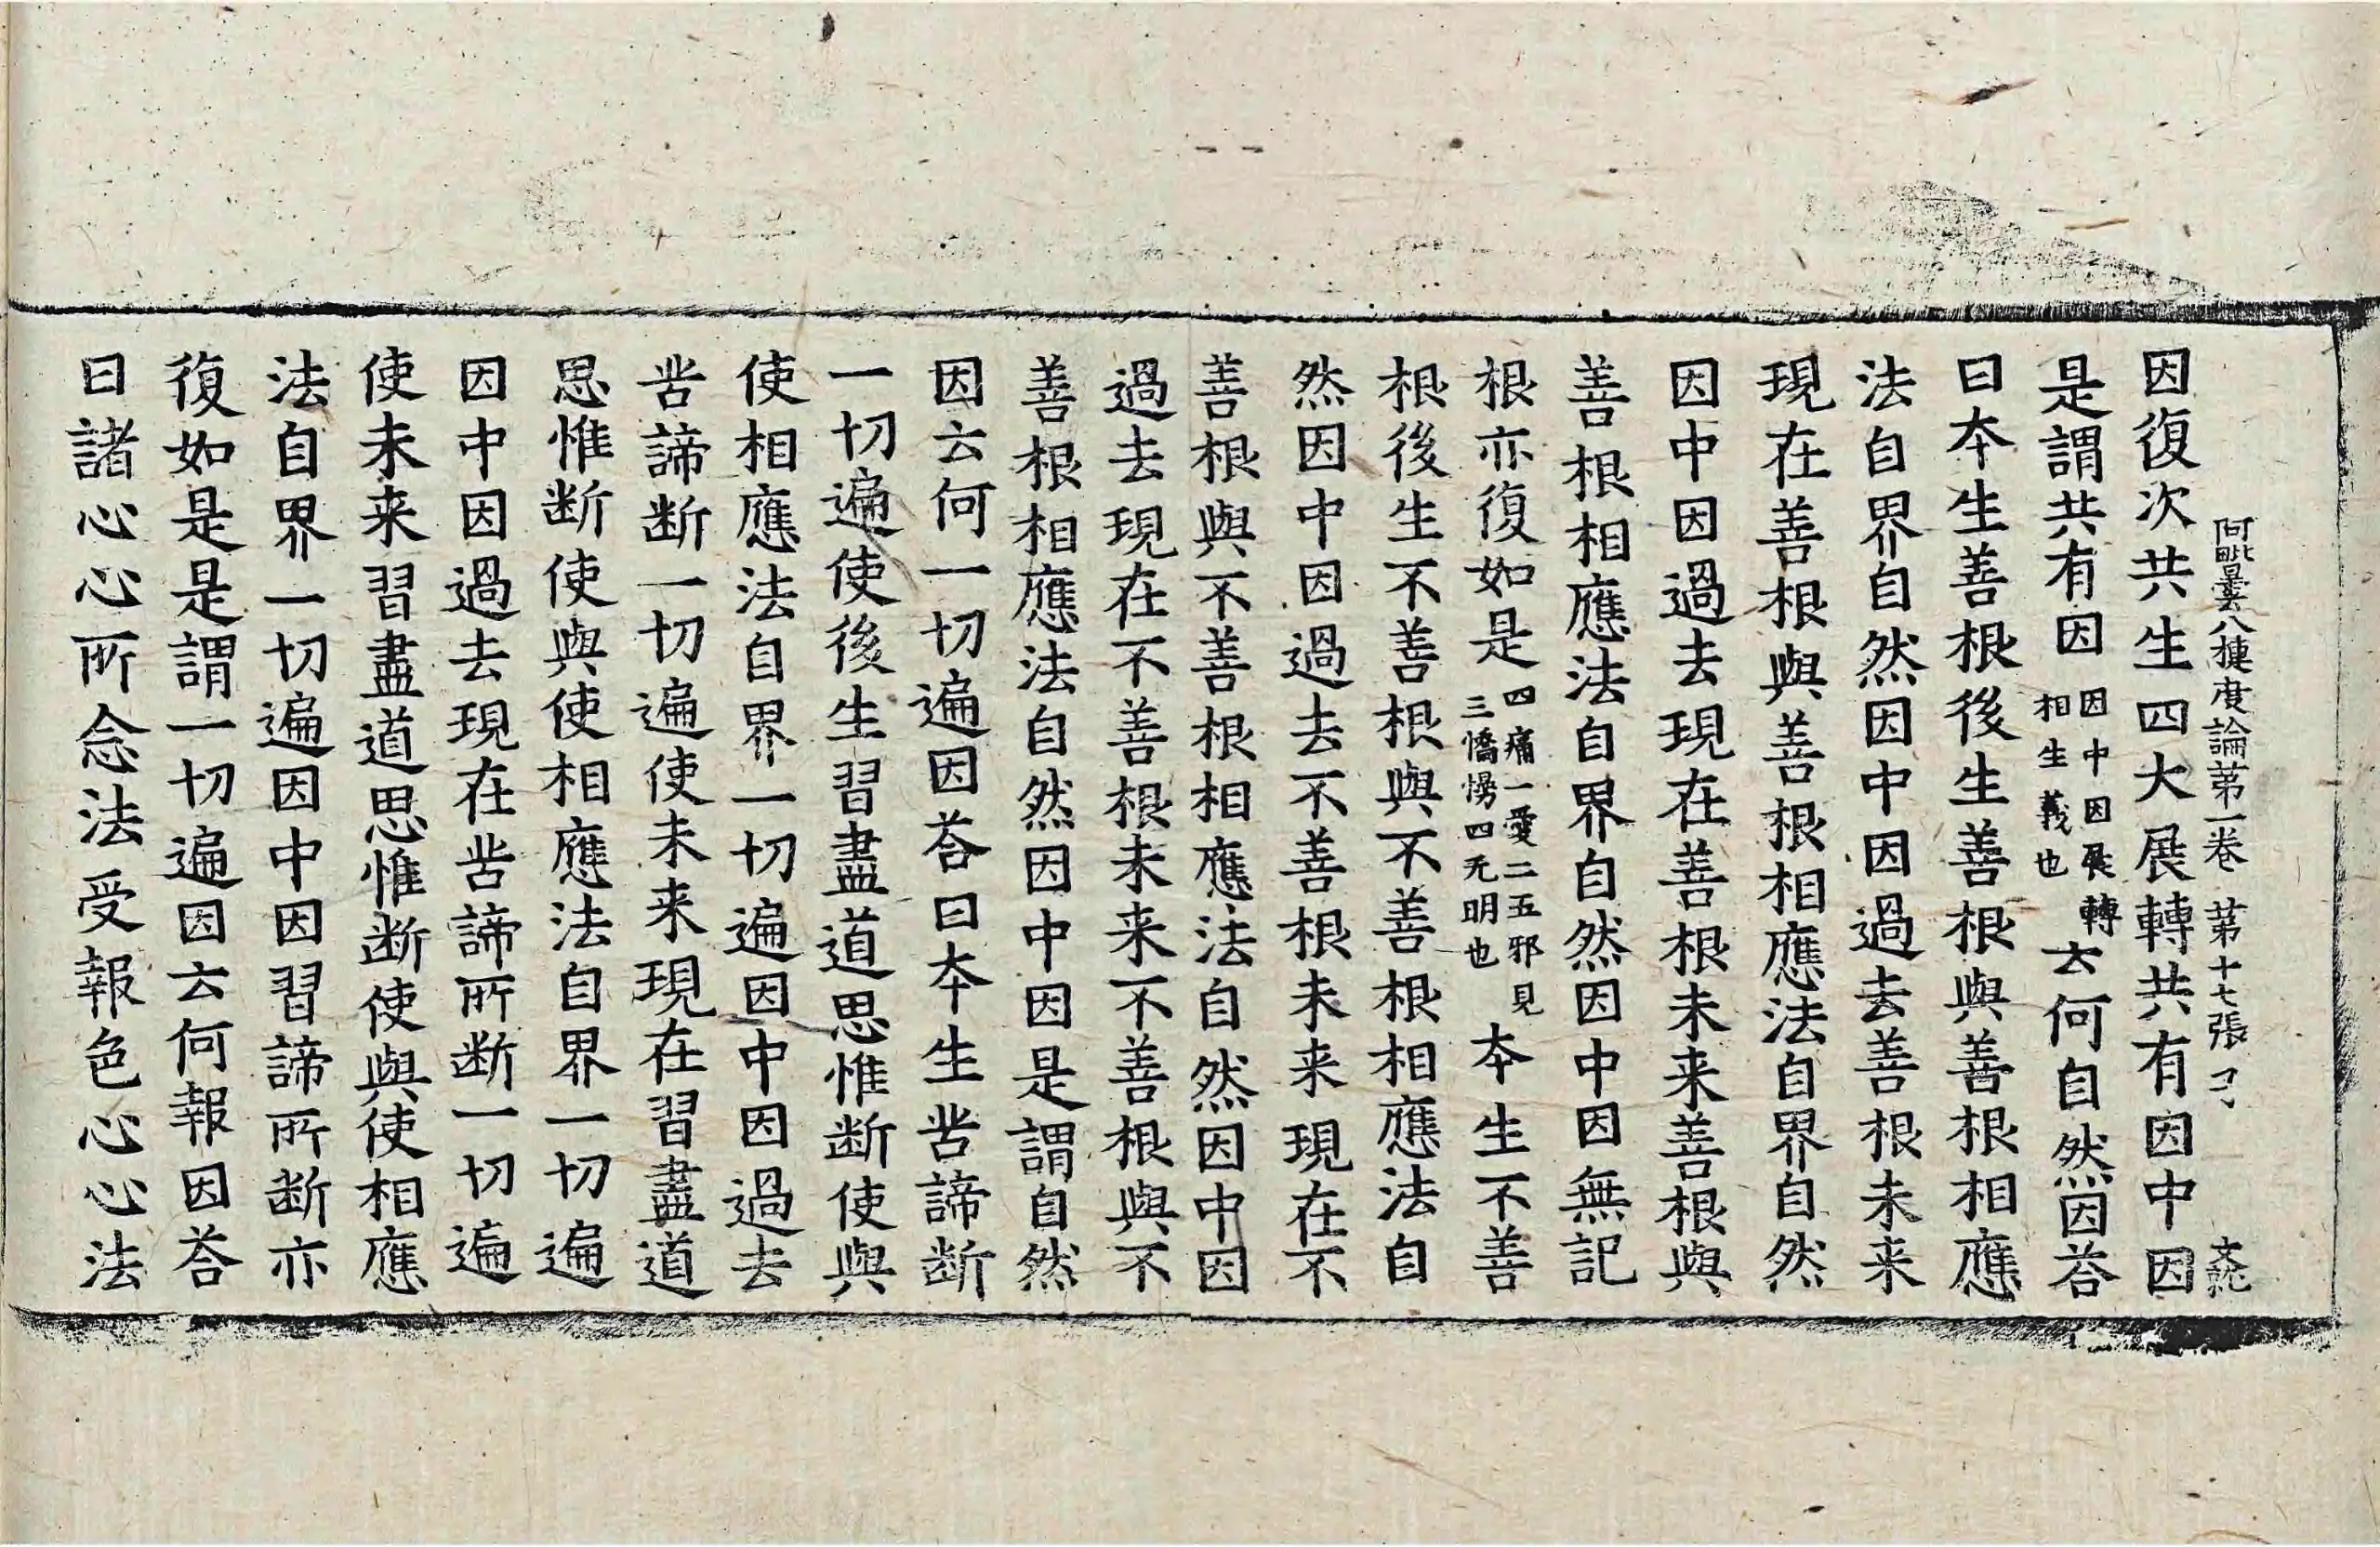 阿毗曇八揵度論第一卷 第十七張 弓
因復次共生四大展轉共有因中因
是謂共有因因中因展轉相生義也云何自然因荅
曰本生善根後生善根與善根相應
法自界自然因中因過去善根未来
現在善根與善根相應法自界自然
因中因過去現在善根未来善根與
善根相應法自界自然因中因無記
根亦復如是四痛一愛二五邪見三憍慢四无明也本生不善
根後生不善根與不善根相應法自
然因中因過去不善根未来現在不
善根與不善根相應法自然因中因
過去現在不善根未来不善根與不
善根相應法自然因中因是謂自然
因云何一切遍因荅曰本生苦諦断
一切遍使後生習盡道思惟断使與
使相應法自界一切遍因中因過去
苦諦断一切遍使未来現在習盡道
思惟断使與使相應法自界一切遍
因中因過去現在苦諦所断一切遍
使未来習盡道思惟断使與使相應
法自界一切遍因中因習諦所断亦
復如是是謂一切遍因云何報因荅
曰諸心心所念法受報色心心法